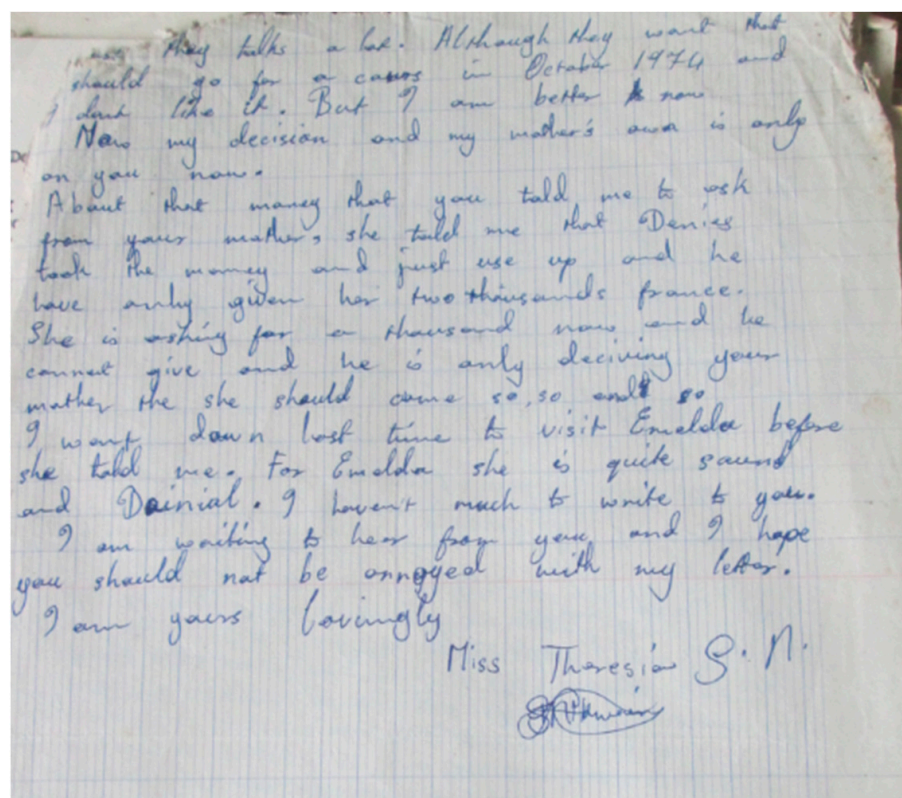 they talks a lot. Although they want that
should go for a cours in October 1974 and
I dont like it. But I am better now
Now my decision and my mother's own is only
on you now.
About that money that you told me to ask
from your mother, she told me that Denies
took the money and just use up and he
have only given her two thousands france.
She is asking for a thousand now and he
cannot give and he is only deciving your
mother the she should come so, so and so
I went down last time to visit Emelda before
she told me. For Emelda she is quite sound
and Dainial. I haven't much to write to you.
I am waiting to hear from you and I hope
you should not be annoyed with my letter.
I am yours lovingly
Miss Theresia S. N.